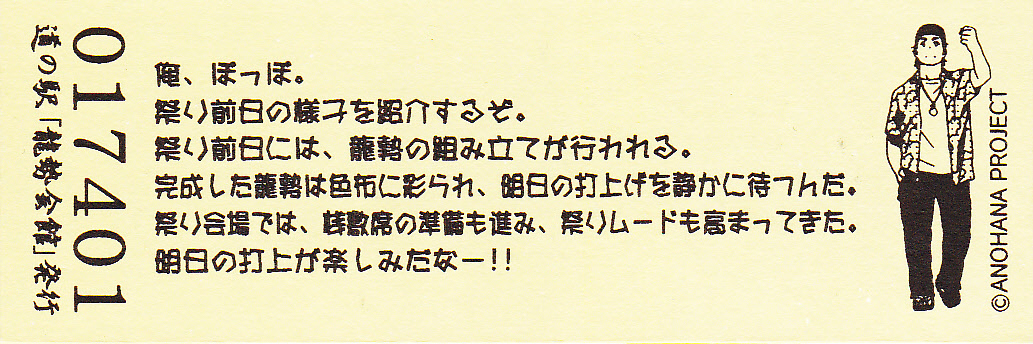 道の駅「龍勢会館」発行
017401
俺、ぽっぽ。
祭り前日の様子を紹介するぞ。
祭り前日には、龍勢の組み立てが行われる。
完成した龍勢は色布に彩られ、明日の打上げを静かに待つんだ。
祭り会場では、桟敷席の準備も進み、祭りムードも高まってきた。
明日の打上が楽しみだなー!!
©ANOHANA PROJECT